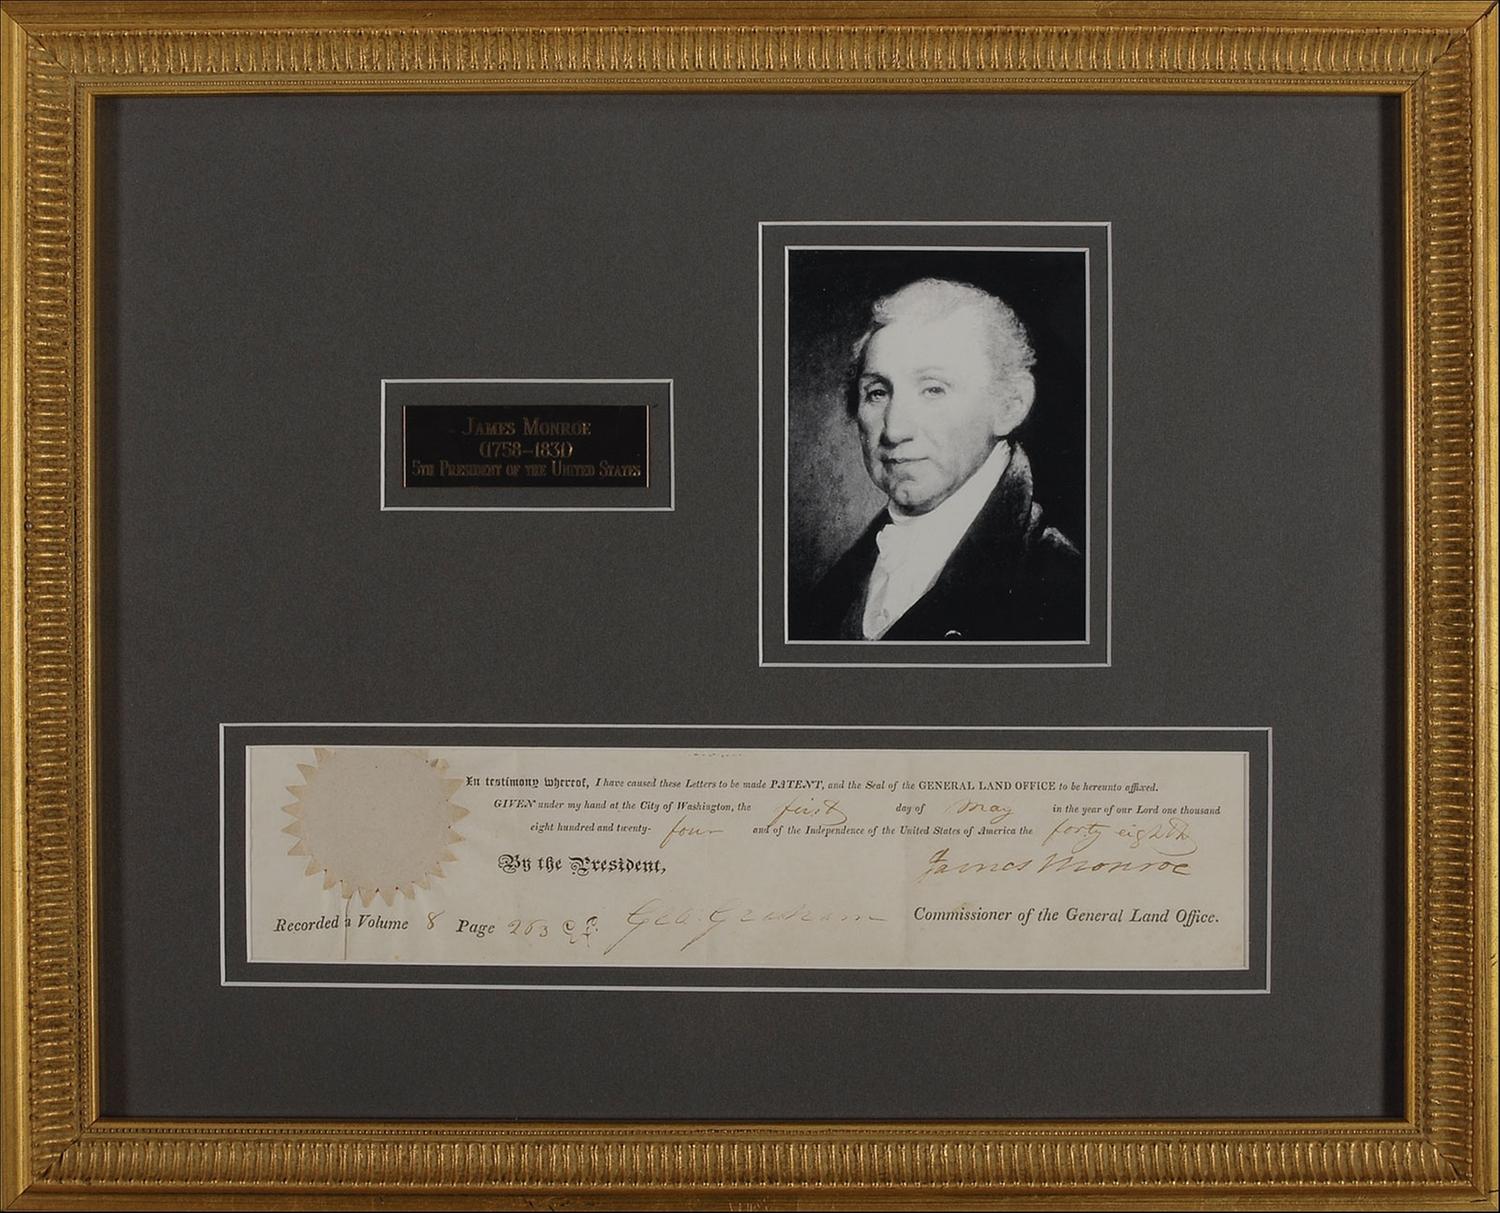 JAMES MONROE
(1758–1831)
5TH PRESIDENT OF THE UNITED STATES
In testimony whereof, I have caused these Letters to be made PATENT, and the Seal of the GENERAL LAND OFFICE to be hereunto affixed.
GIVEN under my hand at the City of Washington, the first day of May in the year of our Lord one thousand
eight hundred and twenty- four and of the Independence of the United States of America the forty eighth
By the President, James Monroe
Recorded Volume 8 Page 263 Geo: Graham Commissioner of the General Land Office.